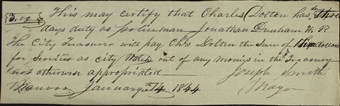 This may certify that Charles Dotten has three
days duty as policeman Jonathan Dunham H. P.
The City Treasurer will pay Chs Dotten the Sum of
for Services as City out of any moneys in the Treasury
not otherwise appropriated. Joseph Smith
Nauvoo January 14 1844 Mayor